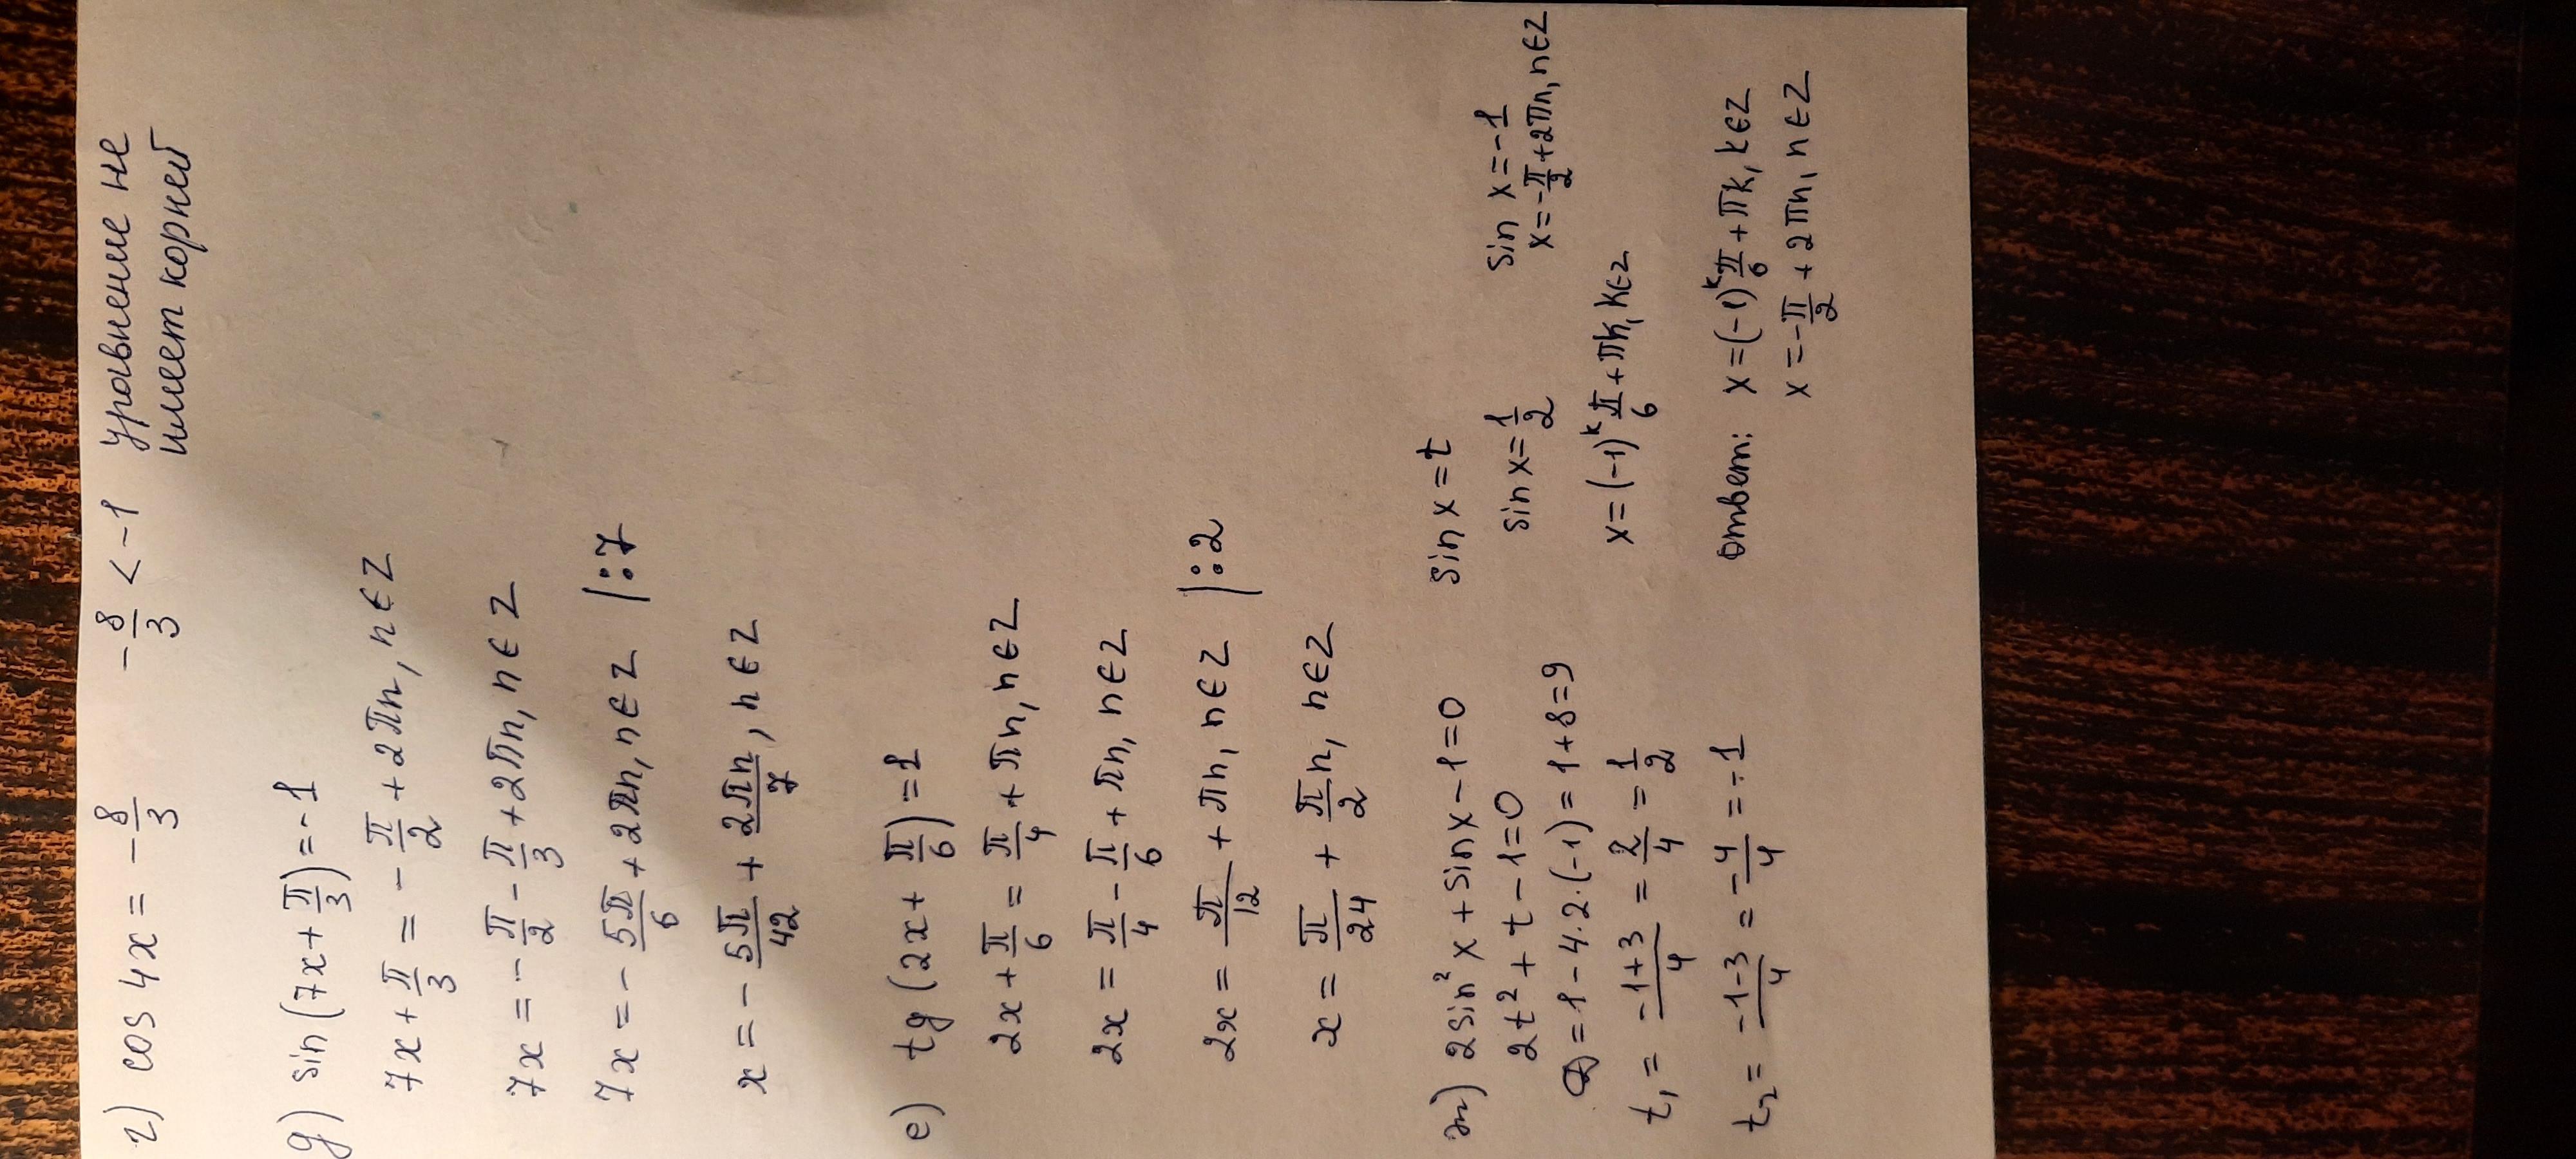 г) cos 4x = -8/3   -8/3 < -1   уравнение не
имеет корней
д) sin (7x + π/3) = -1
7x + π/3 = -π/2 + 2πn, n ∈ Z
7x = -π/2 - π/3 + 2πn, n ∈ Z
7x = -5π/6 + 2πn, n ∈ Z |:7
x = -5π/42 + 2πn/7, n ∈ Z
е) tg (2x + π/6) = 1
2x + π/6 = π/4 + πn, n ∈ Z
2x = π/4 - π/6 + πn, n ∈ Z
2x = π/12 + πn, n ∈ Z |:2
x = π/24 + π/2 n, n ∈ Z
ж) 2sin² x + sin x - 1 = 0   sin x = t
2t² + t - 1 = 0   sin x = 1/2   sin x = -1
x = -π/2 + 2πn, n ∈ Z
D = 1 - 4·2·(-1) = 1 + 8 = 9
t₁ = (-1+3)/4 = 2/4 = 1/2   x = (-1)ᵏ π/6 + πk, k ∈ Z
t₂ = (-1-3)/4 = -4/4 = -1   Ответ: x = (-1)ᵏ π/6 + πk, k ∈ Z
x = -π/2 + 2πn, n ∈ Z